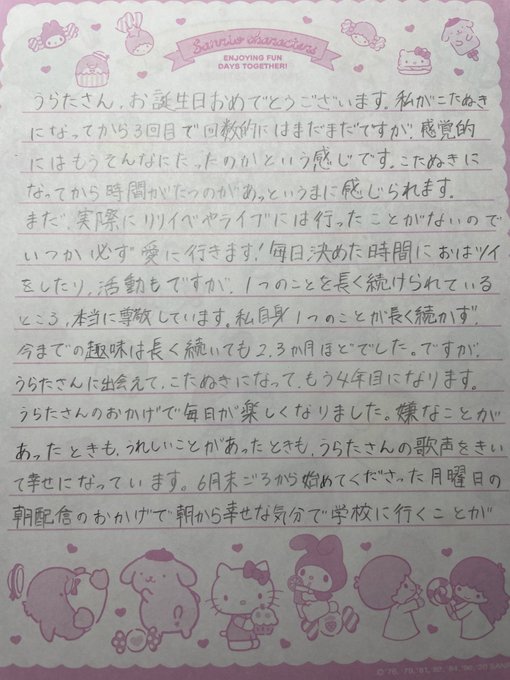 Sanrio characters
ENJOYING FUN
DAYS TOGETHER!
うらたさん、お誕生日おめでとうございます。私がこたぬき
になってから3回目で回数的にはまだまだですが、感覚的
にはもうそんなにたったのかという感じです。こたぬきに
なってから時間がたつのがあっというまに感じられます。
まだ、実際にリリイベやライブには行ったことがないので
いつか必ず愛に行きます!毎日決めた時間におはツイ
をしたり、活動もですが、1つのことを長く続けられている
ところ、本当に尊敬しています。私自身1つのことが長く続かず、
今までの趣味は長く続いても2,3か月ほどでした。ですが、
うらたさんに出会えて、こたぬきになって、もう4年目になります。
うらたさんのおかげで毎日が楽しくなりました。嫌なことが
あったときも、うれしいことがあったときも、うらたさんの歌声をきい
て幸せになっています。6月末ごろから始めてくださった月曜日の
朝配信のおかげで朝から幸せな気分で学校に行くことが